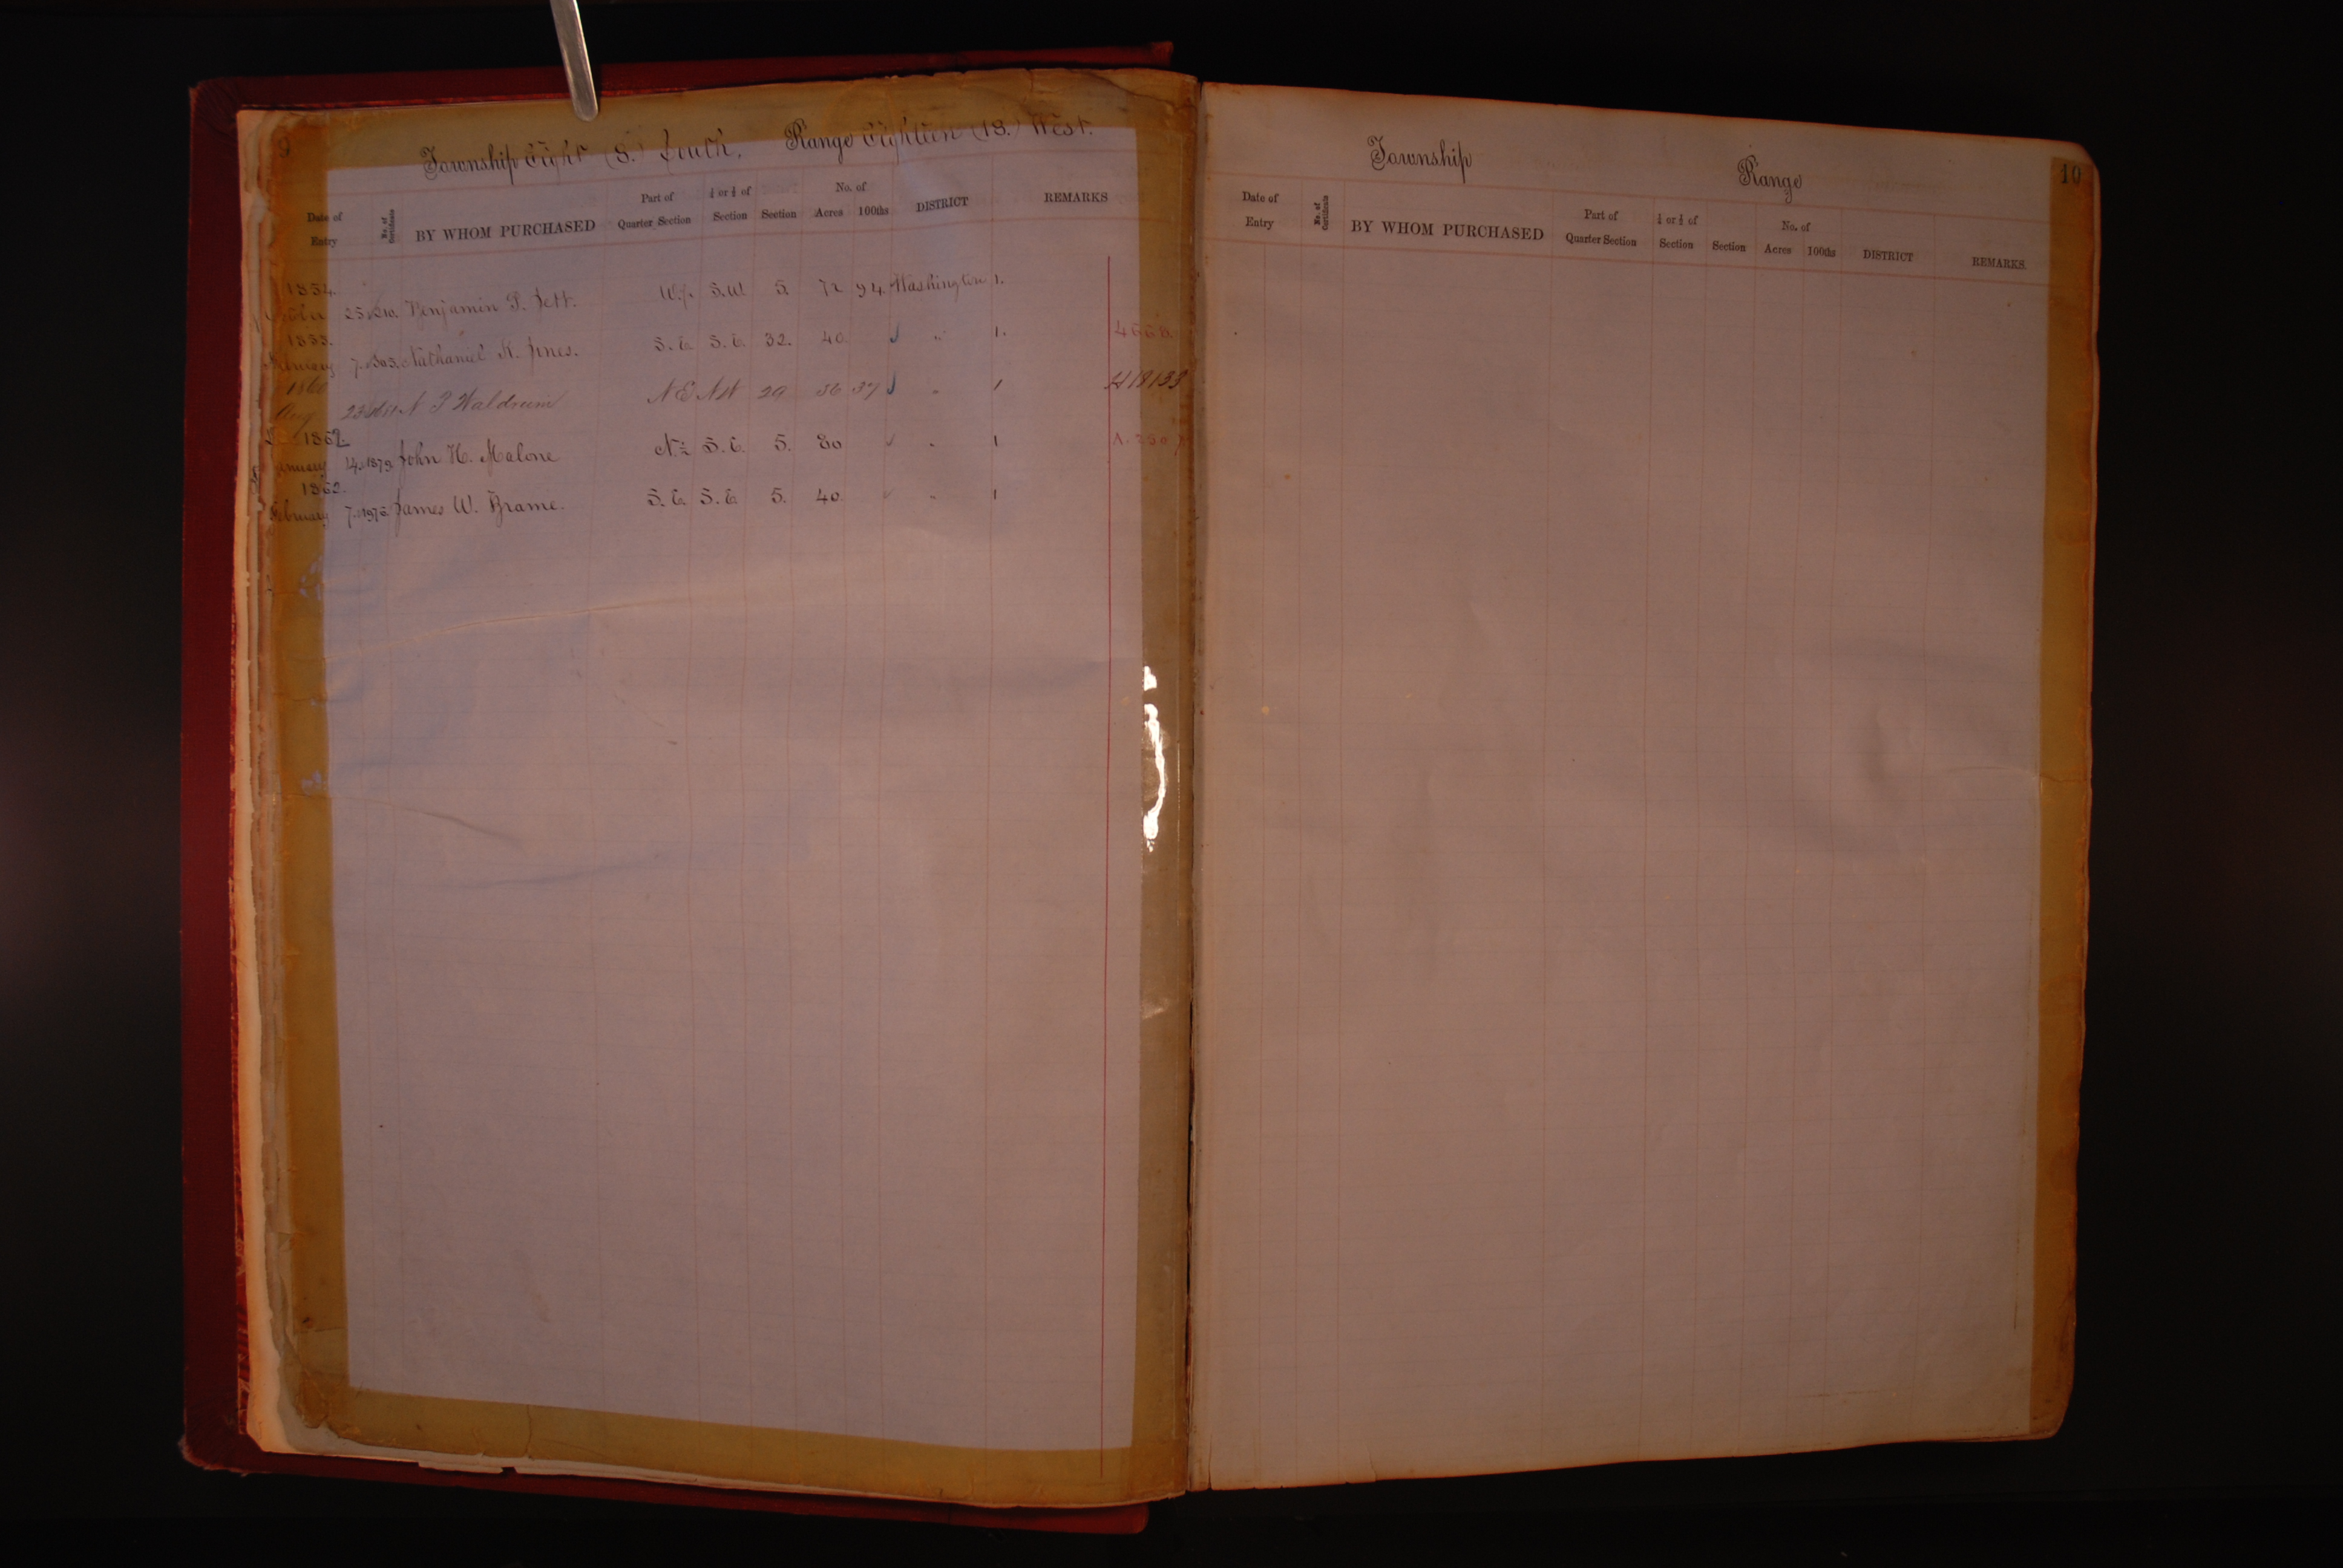 9
Township Eight (8.) South. Range Eighteen (18.) West.
Date of Entry No. of Certificate BY WHOM PURCHASED Part of Quarter Section ½ or ¼ of Section Section No. of Acres 100ths DISTRICT REMARKS
1854.
25 Benjamin P. Jett. W½ S.W 5. 72 94 Washington 1.
February 7. Nathaniel K. Jones. S.E. S.E. 32. 40. " 1. 4668
1860
Aug 23 N P Waldrum N E N W 29 36 37 " 1 18133
1862.
January 14. 1879. John H. Malone N.½ S.E. 5. 80 " 1
1862.
February 7. 1975. James W. Brame. S.E. S.E. 5. 40. " 1
10
Township Range
Date of Entry No. of Certificate BY WHOM PURCHASED Part of Quarter Section ½ or ¼ of Section Section No. of Acres 100ths DISTRICT REMARKS.